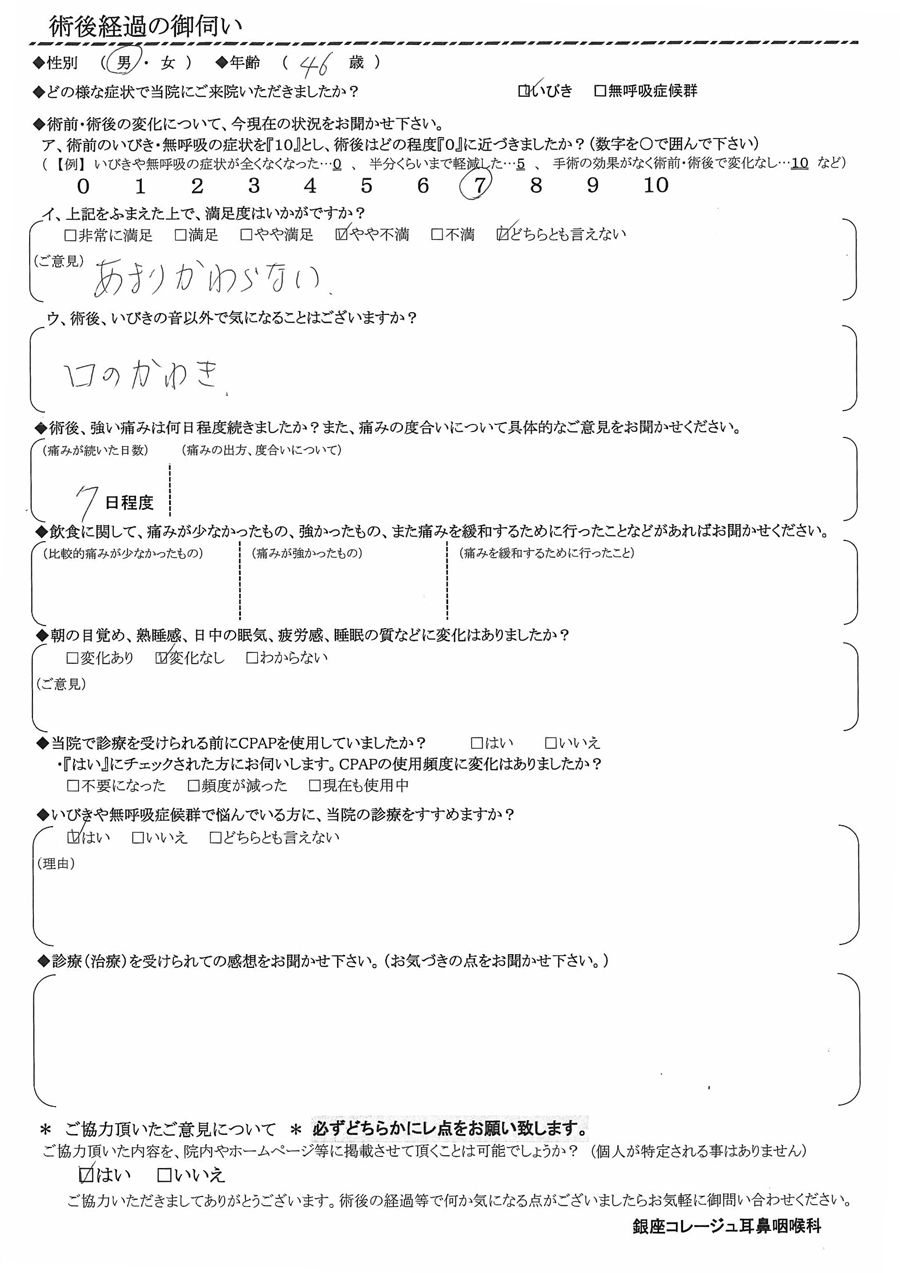 術後経過の御伺い
◆性別 （ 男 ・ 女 ） ◆年齢 （ 46 歳 ）
◆どの様な症状で当院にご来院いただきましたか？ ☑いびき □無呼吸症候群
◆術前・術後の変化について、今現在の状況をお聞かせ下さい。
ア、術前のいびき・無呼吸の症状を『10』とし、術後はどの程度『0』に近づきましたか？（数字を○で囲んで下さい）
（【例】いびきや無呼吸の症状が全くなくなった…0 、 半分くらいまで軽減した…5 、 手術の効果がなく術前・術後で変化なし…10 など）
0 1 2 3 4 5 6 7 8 9 10
イ、上記をふまえた上で、満足度はいかがですか？
□非常に満足 □満足 □やや満足 ☑やや不満 □不満 ☑どちらとも言えない
（ご意見） あまりかわらない.
ウ、術後、いびきの音以外で気になることはございますか？
口のかわき.
◆術後、強い痛みは何日程度続きましたか？また、痛みの度合いについて具体的なご意見をお聞かせください。
（痛みが続いた日数） （痛みの出方、度合いについて）
7 日程度
◆飲食に関して、痛みが少なかったもの、強かったもの、また痛みを緩和するために行ったことなどがあればお聞かせください。
（比較的痛みが少なかったもの） （痛みが強かったもの） （痛みを緩和するために行ったこと）
◆朝の目覚め、熟睡感、日中の眠気、疲労感、睡眠の質などに変化はありましたか？
□変化あり ☑変化なし □わからない
（ご意見）
◆当院で診療を受けられる前にCPAPを使用していましたか？ □はい □いいえ
・『はい』にチェックされた方にお伺いします。CPAPの使用頻度に変化はありましたか？
□不要になった □頻度が減った □現在も使用中
◆いびきや無呼吸症候群で悩んでいる方に、当院の診療をすすめますか？
☑はい □いいえ □どちらとも言えない
（理由）
◆診療（治療）を受けられての感想をお聞かせ下さい。（お気づきの点をお聞かせ下さい。）
＊ ご協力頂いたご意見について ＊ 必ずどちらかにレ点をお願い致します。
ご協力頂いた内容を、院内やホームページ等に掲載させて頂くことは可能でしょうか？ （個人が特定される事はありません）
☑はい □いいえ
ご協力いただきましてありがとうございます。術後の経過等で何か気になる点がございましたらお気軽に御問い合わせください。
銀座コレージュ耳鼻咽喉科